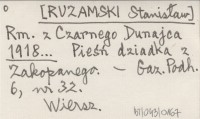 [RUZAMSKI Stanisław]
Rm. z Czarnego Dunajca
1918... Pieśń dziadka z
Zakopanego. — Gaz. Podh.
6, nr 32.
Wiersz.